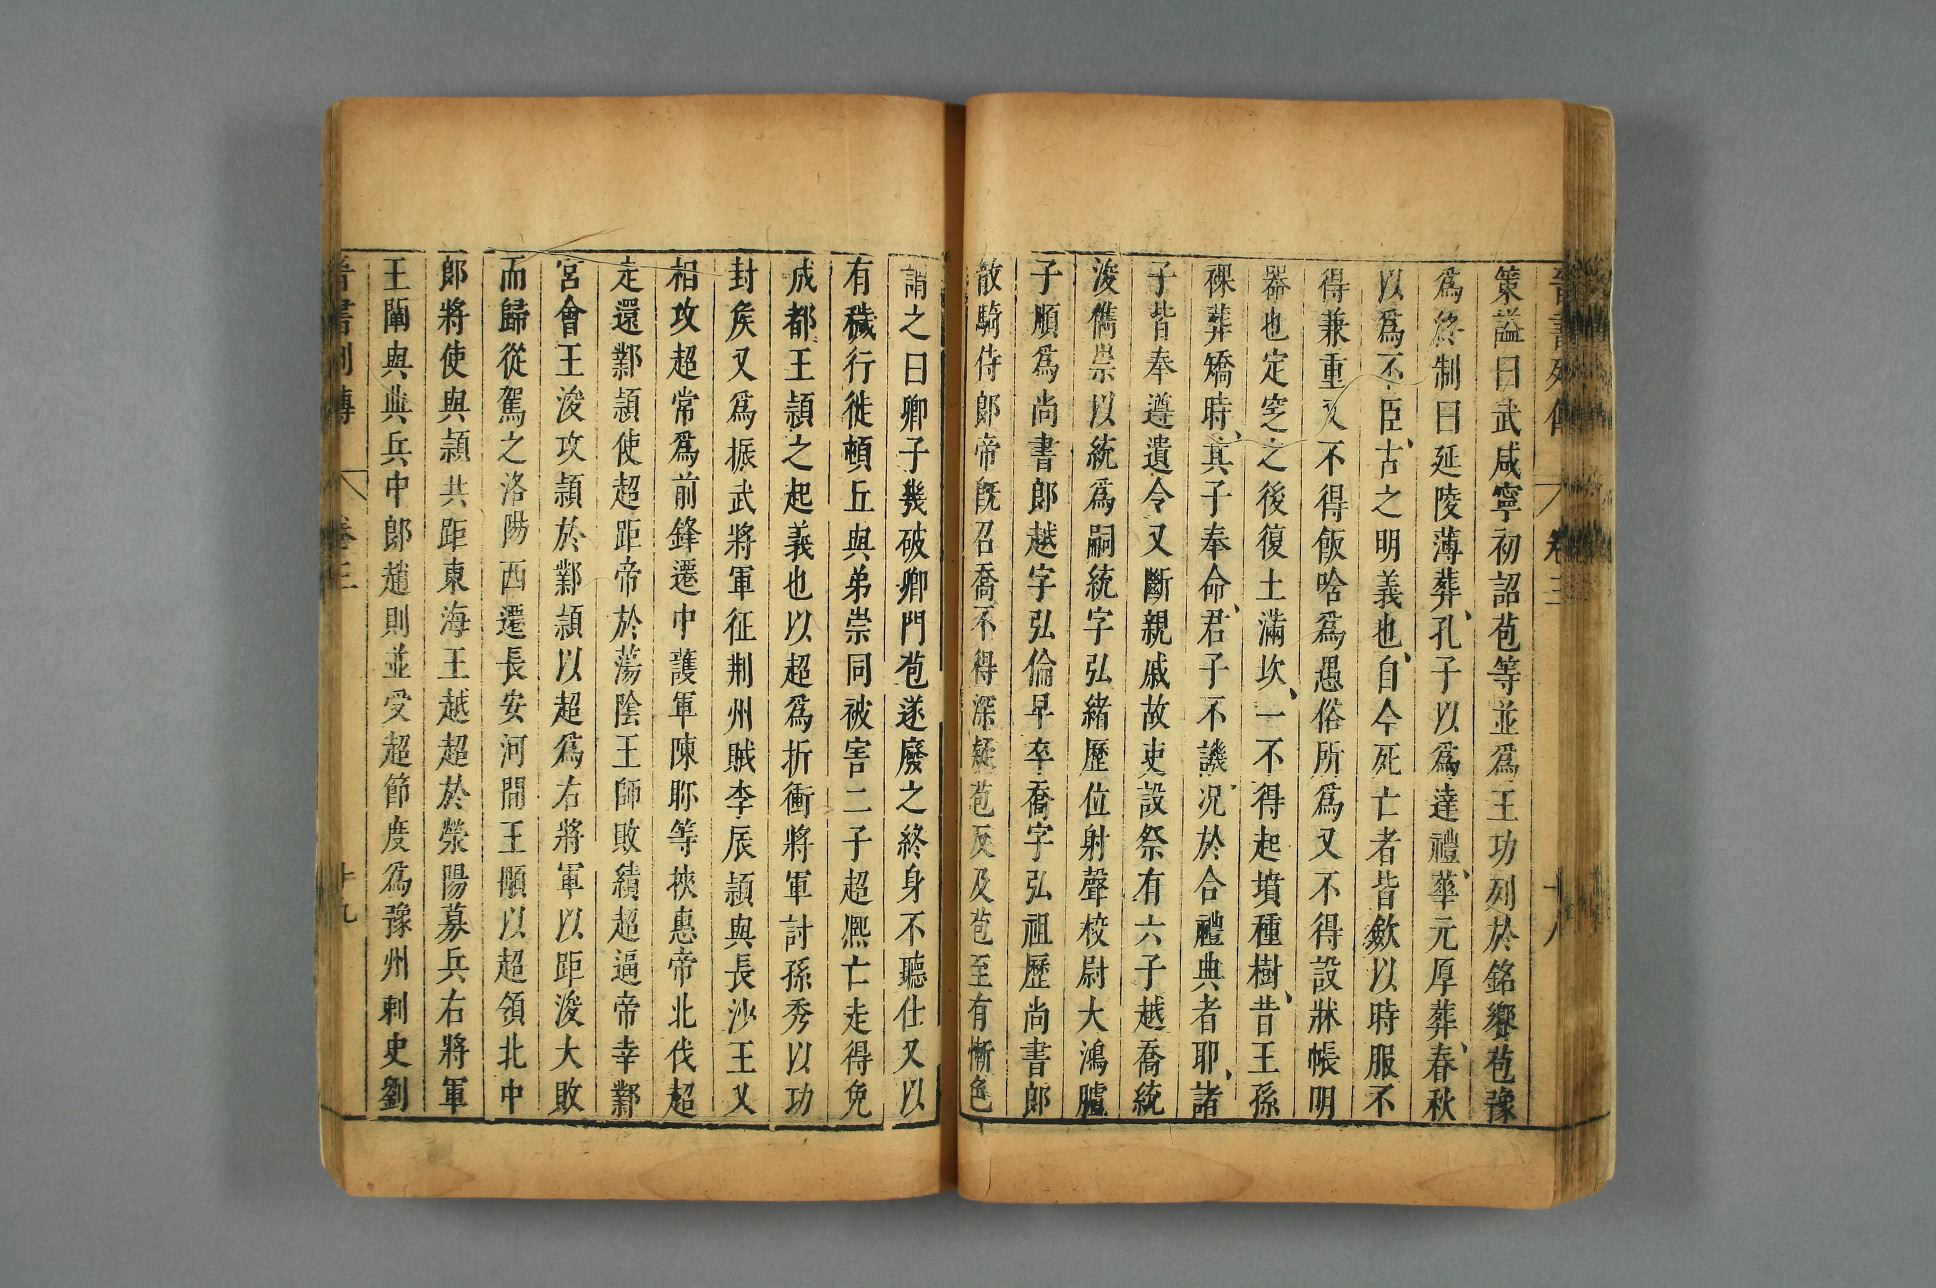 晉書列傳 卷三 十八
策謚曰武咸寧初詔苞等並爲王功列於銘饗苞豫
爲終制曰延陵薄葬、孔子以爲達禮、華元厚葬、春秋
以爲不臣、古之明義也、自今死亡者皆歛以時服不
得兼重又不得飯唅爲愚俗所爲又不得設牀帳明
器也定窆之後復土滿坎、一不得起墳種樹、昔王孫
裸葬矯時、其子奉命、君子不譏、况於合禮典者耶、諸
子皆奉遵遺令又斷親戚故吏設祭有六子越喬統
浚儁崇以統爲嗣統字弘緒歷位射聲校尉大鴻臚
子順爲尚書郎越字弘倫早卒喬字弘祖歷尚書郎
散騎侍郎帝既召喬不得深疑苞反及苞至有慚色
謂之曰卿子幾破卿門苞遂廢之終身不聽仕又以
有穢行徙頓丘與弟崇同被害二子超熈亡走得免
成都王頴之起義也以超爲折衝將軍討孫秀以功
封矦又爲振武將軍征荆州賊李辰頴與長沙王乂
相攻超常爲前鋒遷中護軍陳眕等挾惠帝北伐超
走還鄴頴使超距帝於蕩陰王師敗績超逼帝幸鄴
宮會王浚攻頴於鄴頴以超爲右將軍以距浚大敗
而歸從駕之洛陽西遷長安河間王顒以超領北中
郎將使與頴共距東海王越超於滎陽募兵右將軍
王闡與典兵中郎趙則並受超節度爲豫州刺史劉
晉書列傳 卷三 十九